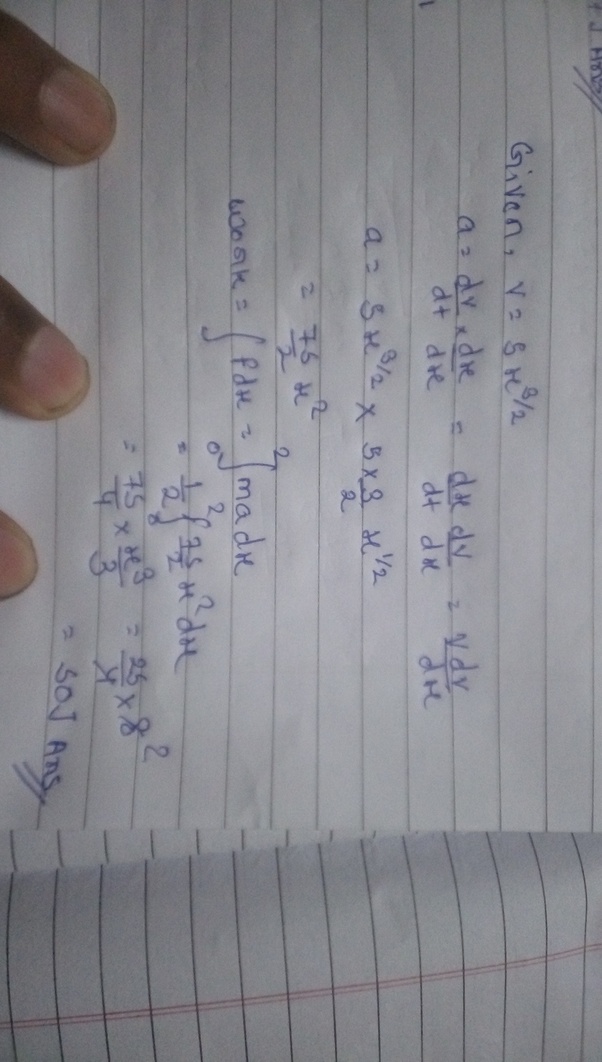 J Ans
Given, v = 5x^3/2
a = dv/dt × dx/dx = dx/dt dv/dx = v dv/dx
a = 5x^3/2 × 5×3/2 x^1/2
= 75/2 x^2
work = ∫ F dx = ∫₀² ma dx
= 1/2 ∫₀² 75/2 x^2 dx
= 75/4 × x^3/3 = 25/4 × 8 2
= 50J Ans